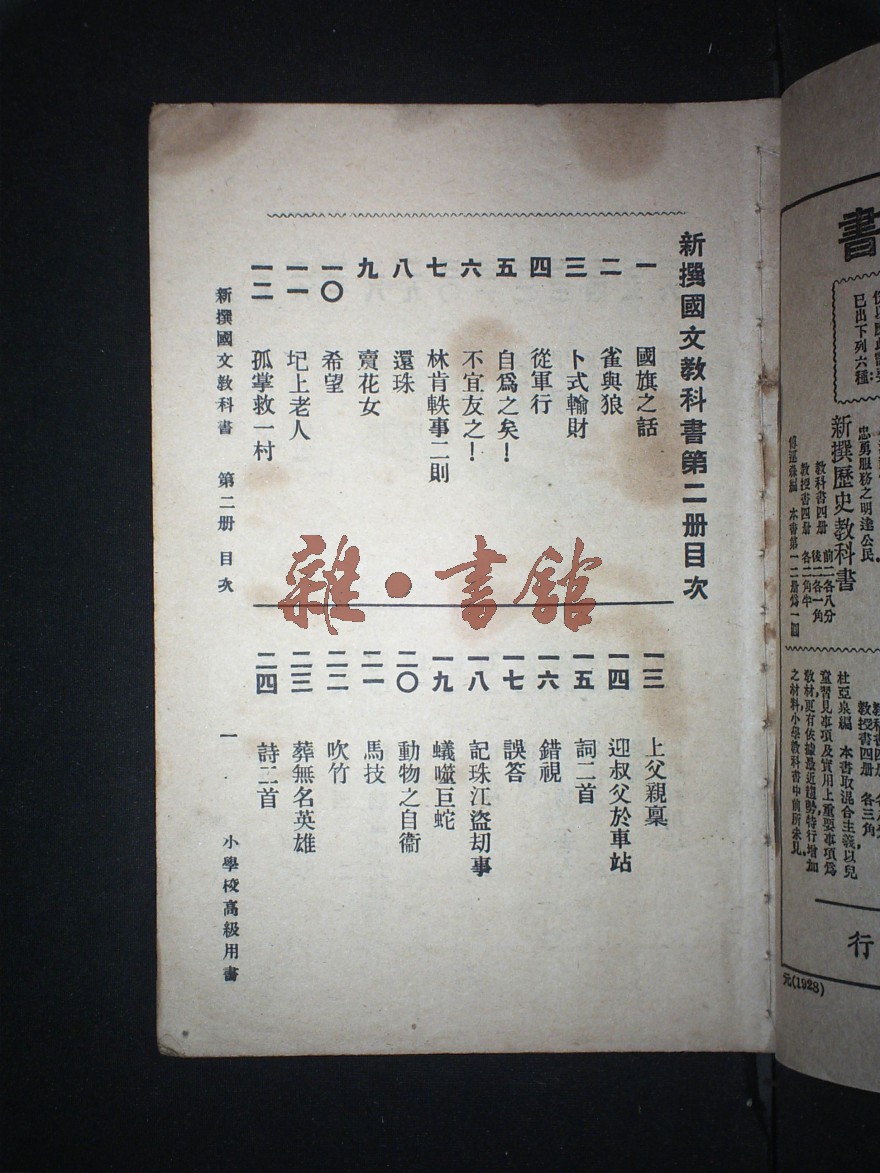 新撰國文教科書第二册目次
一 國旗之話
二 雀與狼
三 卜式輸財
四 從軍行
五 自爲之矣！
六 不宜友之！
七 林肯軼事二則
八 還珠
九 賣花女
一〇 希望
一一 圯上老人
一二 孤掌救一村
一三 上父親稟
一四 迎叔父於車站
一五 詞二首
一六 錯視
一七 誤答
一八 記珠江盜劫事
一九 蟻噬巨蛇
二〇 動物之自衞
二一 馬技
二二 吹竹
二三 葬無名英雄
二四 詩二首
新撰國文教科書 第二册 目次 一 小學校高級用書
雜·書館
書
已出下列六種
忠勇服務之明達公民
新撰歷史教科書
教科書四册 前二各八分 後二各一角
教授書四册 各二角半
本書第一二册爲一圓
教授書四册 各三角
杜亞泉編 本書取混合主義以兒
童習見事項及實用上重要事項爲
教材，更有依據最近趨勢特行增加
之材料，小學教科書中前所未見。
行
元(1928)